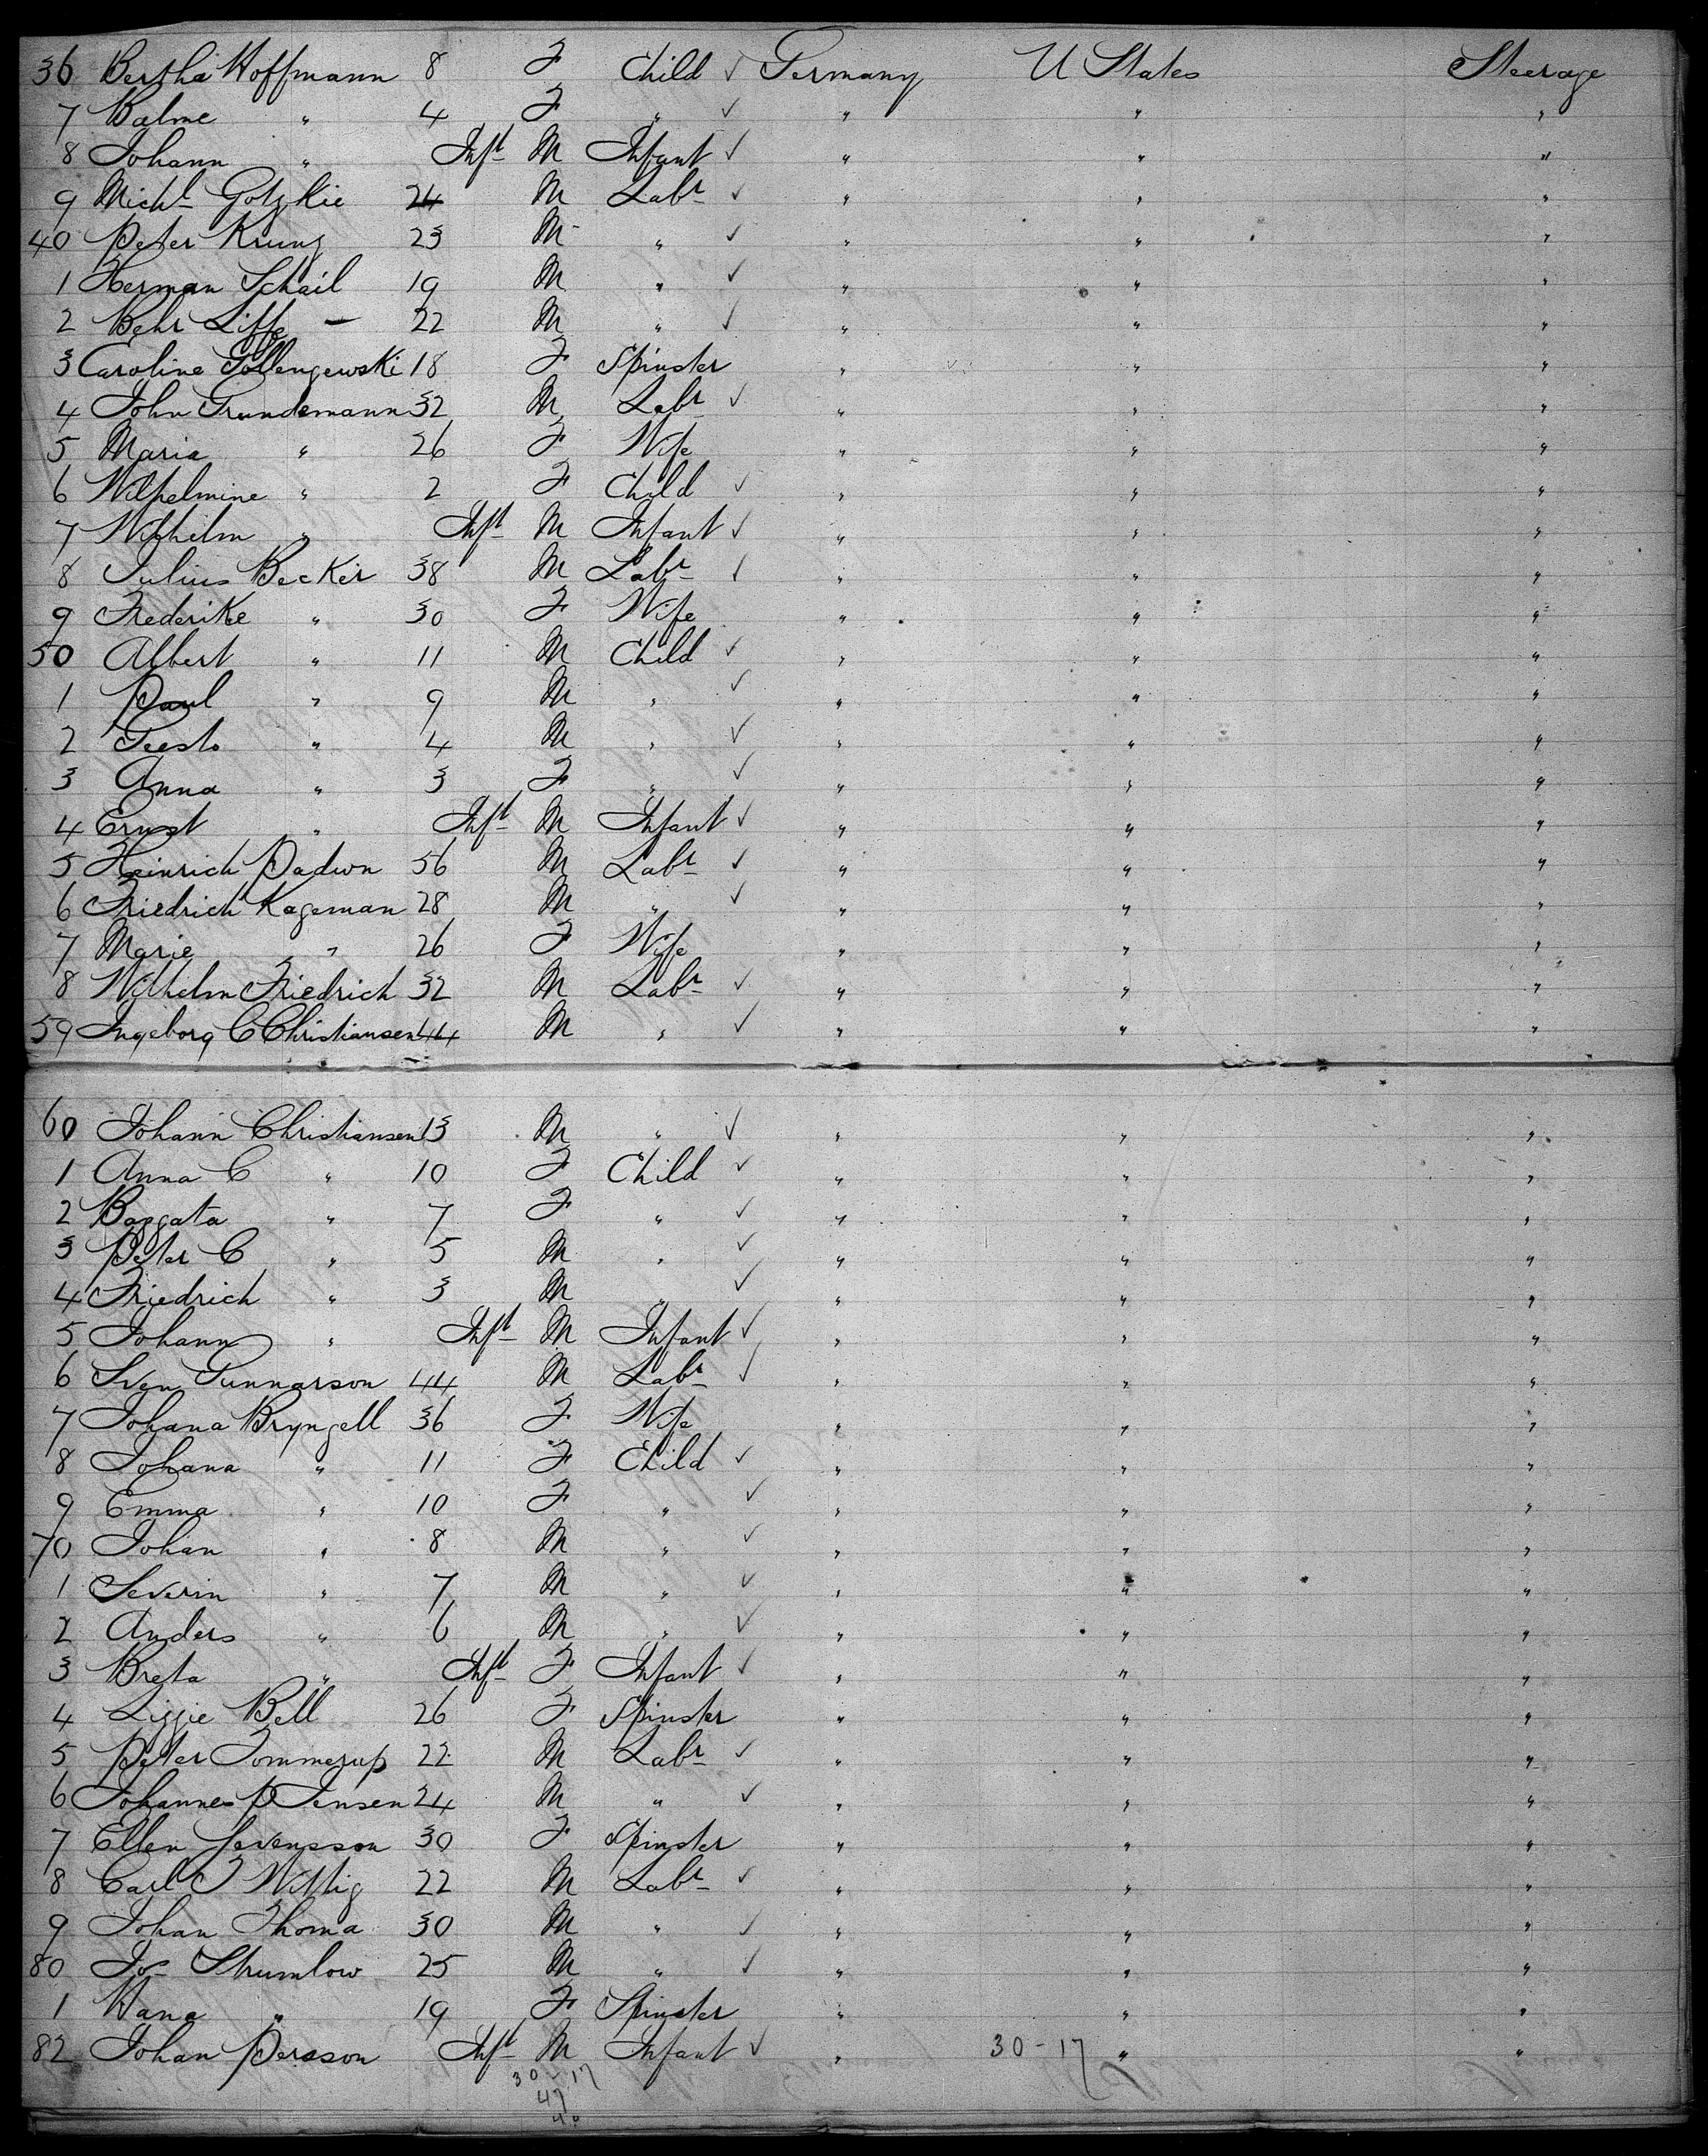 36 Bertha Hoffmann 8 F Child ✓ Germany U States Steerage
7 Balme " 4 F " ✓ " " "
8 Johann " Inft M Infant ✓ " " "
9 Michl Gotzkie 24 M Labr ✓ " " "
40 Peter Krung 23 M " ✓ " " "
1 Herman Schail 19 M " ✓ " " "
2 Behr Liffe — 22 M " ✓ " " "
3 Caroline Gollengewski 18 F Spinster " " "
4 John Grundemann 32 M Labr ✓ " " "
5 Maria " 26 F Wife " " "
6 Wilhelmine " 2 F Child ✓ " " "
7 Wilhelm " Inft M Infant ✓ " " "
8 Julius Becker 38 M Labr ✓ " " "
9 Frederike " 30 F Wife " " "
50 Albert " 11 M Child ✓ " " "
1 Paul " 9 M " ✓ " " "
2 Geesto " 4 M " ✓ " " "
3 Anna " 3 F " ✓ " " "
4 Ernst " Inft M Infant ✓ " " "
5 Heinrich Padwn 56 M Labr ✓ " " "
6 Friedrich Kageman 28 M " ✓ " " "
7 Marie " 26 F Wife " " "
8 Wilhelm Friedrich 32 M Labr ✓ " " "
59 Ingeborg C Christiansen 44 M " ✓ " " "
60 Johann Christiansen 13 M " ✓ " " "
1 Anna C " 10 F Child ✓ " " "
2 Baggata " 7 F " ✓ " " "
3 Peter C " 5 M " ✓ " " "
4 Friedrich " 3 M " ✓ " " "
5 Johann " Inft M Infant ✓ " " "
6 Sven Gunnarson 44 M Labr ✓ " " "
7 Johana Bryngell 36 F Wife " " "
8 Johana " 11 F Child ✓ " " "
9 Emma " 10 F " ✓ " " "
70 Johan " 8 M " ✓ " " "
1 Severin " 7 M " ✓ " " "
2 Anders " 6 M " ✓ " " "
3 Breta " Inft F Infant ✓ " " "
4 Lizzie Bell 26 F Spinster " " "
5 Peter Tommerup 22 M Labr ✓ " " "
6 Johannes P Jensen 24 M " ✓ " " "
7 Ellen Sevensson 30 F Spinster " " "
8 Carl J Wittig 22 M Labr ✓ " " "
9 Johan Thoma 30 M " ✓ " " "
80 Jos Strumlow 25 M " ✓ " " "
1 Hana " 19 F Spinster " " "
82 Johan Persson Inft M Infant ✓ " 30-17 " "
30-17
47